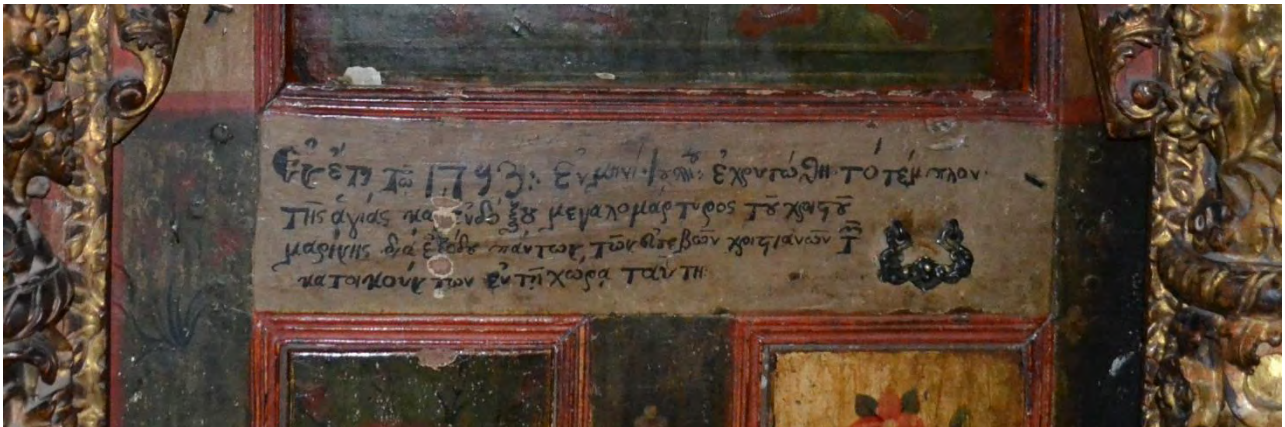 ἔτη τῶ 1793: ἐν μηνὶ ἐχρυσώθη τὸ τέμπλον.
τῆς ἁγίας καὶ ἐνδόξου μεγαλομάρτυρος τοῦ χριστοῦ
μαρίνης διὰ ἐξόδου πάντων τῶν εὐσεβῶν χριστιανῶν τ
κατοικούντων ἐν τῇ χώρᾳ ταύτη